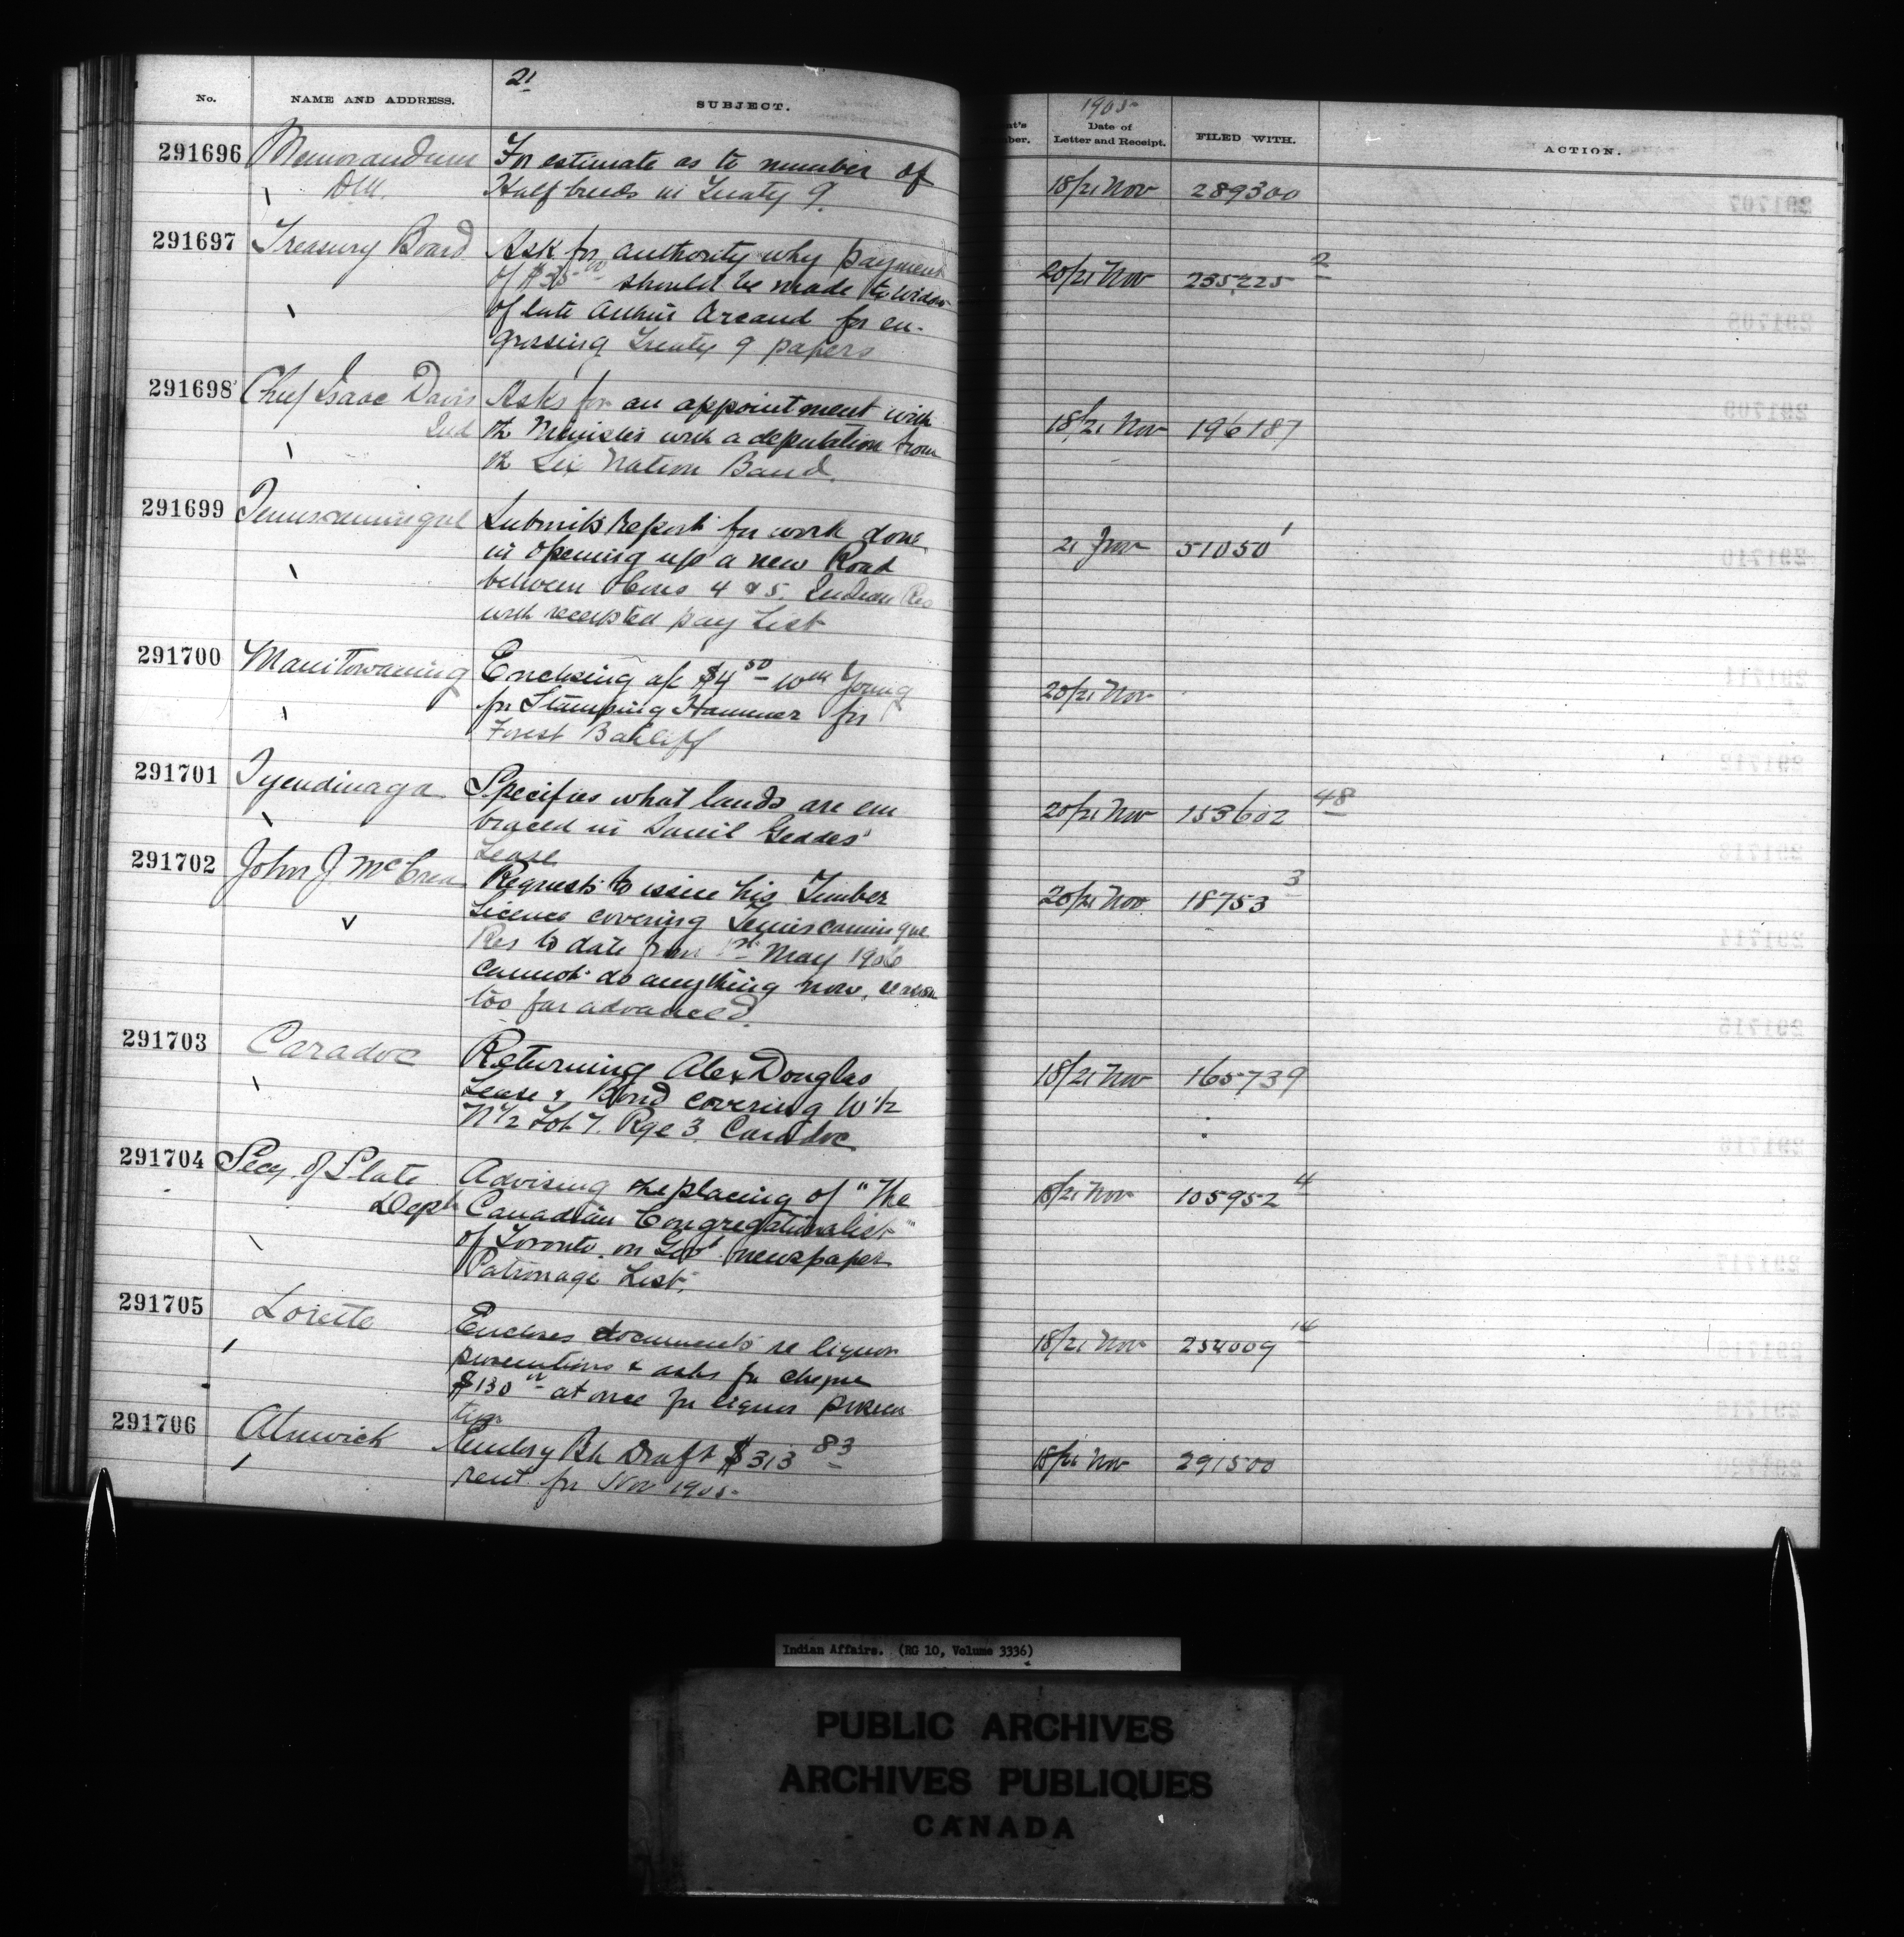 21
No. NAME AND ADDRESS. SUBJECT.
1905
Date of Letter and Receipt. FILED WITH. ACTION.
291696 Memorandum For estimate as to number of
D.M. Half breeds in Treaty 9. 18/21 Nov 289300
291697 Treasury Board Ask for authority why payment
of $35 00 should be made to widow 20/21 Nov 235225 2
of late Arthur Arcand for en-
grossing Treaty 9 papers
291698 Chief Isaac Davis Asks for an appointment with
Ind the Minister with a deputation from 18/21 Nov 196187
the Six Nation Band.
291699 Temiscamingue Submits report for work done
in opening up a new Road 21 Nov 51050 1
between Cons 4 & 5. Indian Res
with receipted pay List
291700 Manitowaning Enclosing a/c $4 50 Wm Young
for Stamping Hammer for 20/21 Nov
Forest Bailiff
291701 Tyendinaga Specifies what lands are em
braced in Daniel Geddes' 20/21 Nov 153602 48
Lease
291702 John J. McCrea Requests to issue his Timber
Licence covering Temiscamingue 20/21 Nov 18753 3
Res to date from 1st May 1906
cannot do anything now, season
too far advanced.
291703 Caradoc Returning Alex Douglas
Lease & Bond covering W 1/2 18/21 Nov 165739
N 1/2 Lot 7. Rge 3. Caradoc
291704 Secy of State Advising the placing of "The
Dept Canadian Congregationalist" 18/21 Nov 105952 4
of Toronto on Govt newspaper
Patronage List.
291705 Lorette Encloses documents re liquor
prosecutions & asks for cheque 18/21 Nov 254009
$130 00 at once for liquor prosecu
tion
291706 Alnwick Sending Bk Draft $313 83
rent for Nov 1905- 18/21 Nov 291500
Indian Affairs. (RG 10, Volume 3336)
PUBLIC ARCHIVES
ARCHIVES PUBLIQUES
CANADA